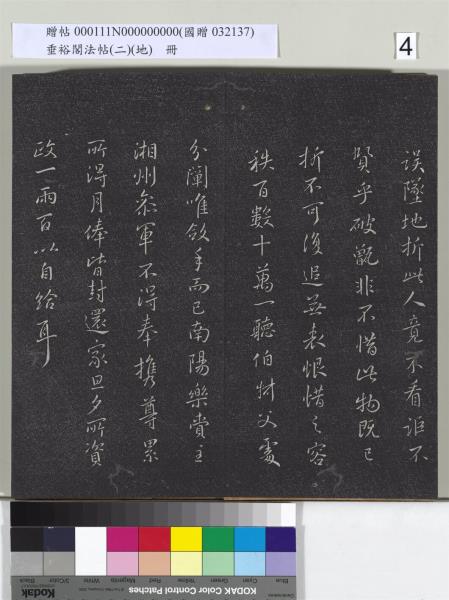 贈帖 000111N000000000(國贈 032137)
垂裕閣法帖(二)(地) 冊
4
誤墜地折此人竟不看詎不
賢乎破甑非不惜此物既已
折不可復追無表恨惜之容
秩百數十萬一聽伯才父處
分闈唯斂手而已南陽樂賞主
湘州參軍不得奉攜尊累
所得月俸皆封還家旦夕所資
政一兩百以自給耳
Kodak
KODAK Color Control Patches
Blue
Cyan
Green
Yellow
Red
Magenta
White
3/Color
Black